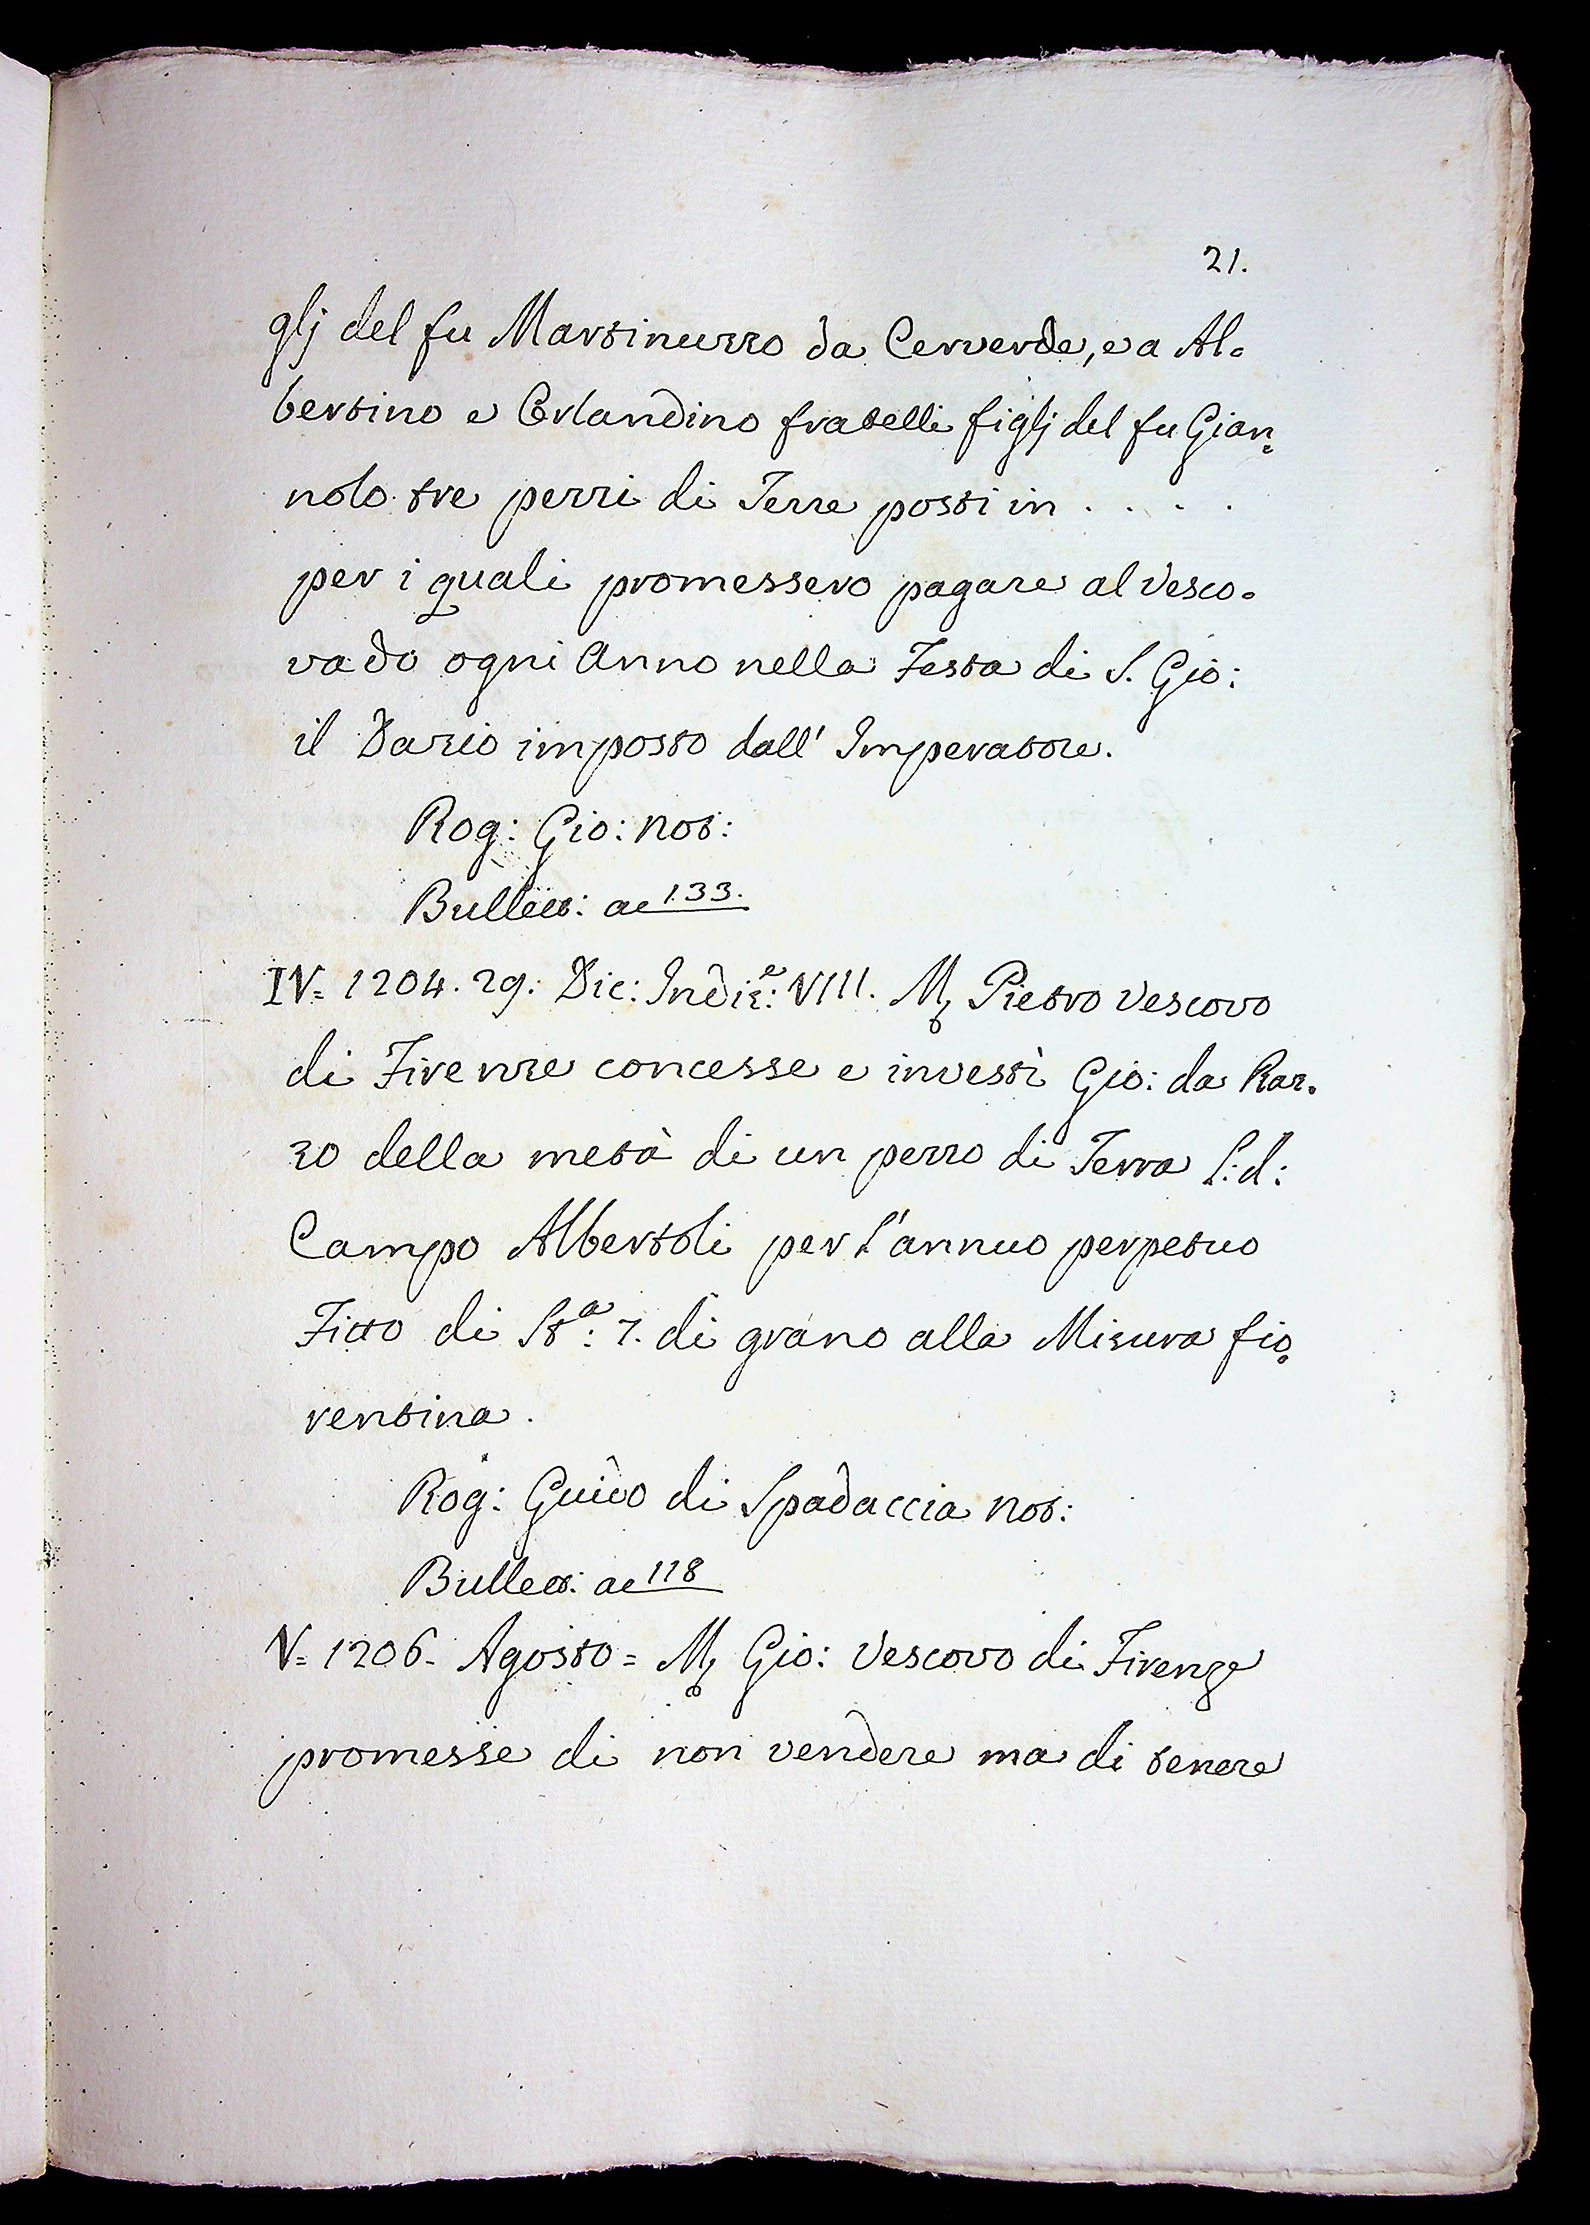 21.
glj del fu Martinuzzo da Cerverde, e a Al=
bertino e Orlandino fratelli figlj del fu Gian=
nolo tre pezzi di Terre posti in . . . .
per i quali promessero pagare al Vesco=
vado ogni Anno nella Festa di S. Gio:
il Dazio imposto dall' Imperatore.
Rog: Gio: Not:
Bullett: ac 133.
IV= 1204. 29. Dic: Indiz:e VIII. M. Pietro Vescovo
di Firenze concesse e investì Gio: da Raz=
zo della metà di un pezzo di Terra l: d:
Campo Albertoli per l'annuo perpetuo
Fitto di St:a 7. di grano alla Misura fio=
rentina.
Rog: Guido di Spadaccia Not:
Bullett: ac 118
V= 1206. Agosto = M. Gio: Vescovo di Firenze
promesse di non vendere ma di tenere